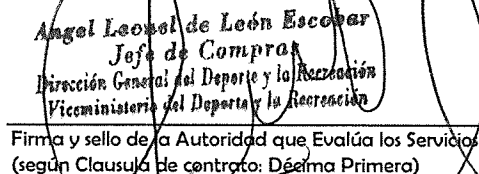 Angel Leonel de León Escobar
Jefe de Compras
Dirección General del Deporte y la Recreación
Viceministerio del Deporte y la Recreación
Firma y sello de la Autoridad que Evalúa los Servicios
(según Clausula de contrato: Décima Primera)